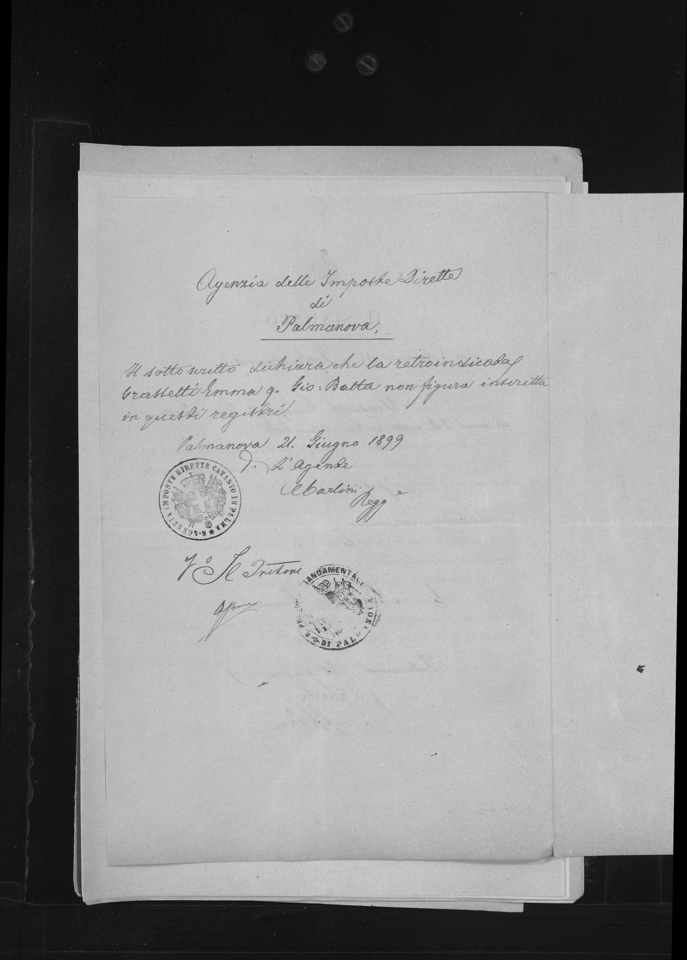 Agenzia delle Imposte Dirette
di
Palmanova.
Il sottoscritto dichiara che la retroindicata
Grassetti Emma q. Gio: Batta non figura inscritta
in questi registri.
Palmanova 21. Giugno 1899
L'Agente
Martini
Regg e
R. AGENZIA IMPOSTE DIRETTE CATASTO IN PALMA
Vo Il Pretore
MANDAMENTALE
DI PAL
IL SINDACO